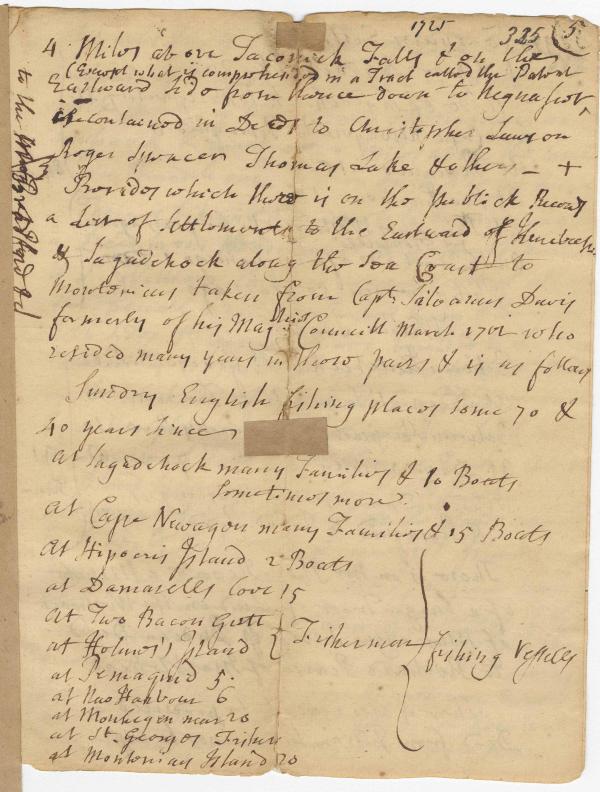 1725
325
5
4 Miles above Taconick Falls & on the
(Except what is comprehended in a Tract called the Patent
Eastward side from thence down to Negnascot
is contained in Deeds to Christopher Lawson
Roger Spencer Thomas Lake & others — +
Besides which there is on the publick Records
a List of Settlements to the Eastward of Kenebeck
& Sagadehock along the Sea Coast to
Montinicus taken from Capt. Silvanus Davis
formerly of his Maj. Councill March 1701 who
resided many years in those parts & is as follows
Sundry English fishing places some 70 &
40 years since
at Sagadehock many Families & 10 Boats
sometimes more.
at Cape Nuwagen many Families & 15 Boats
At Hipocris Island 2 Boats
at Damarells Cove 15
At Two Bacon Gutt
at Holmes's Island } Fishermen
fishing Vessells
at Pemaquid 5.
at New Harbour 6
at Monhegon near 20
at St. Georges Fishers
at Montinicus Island 20
to the